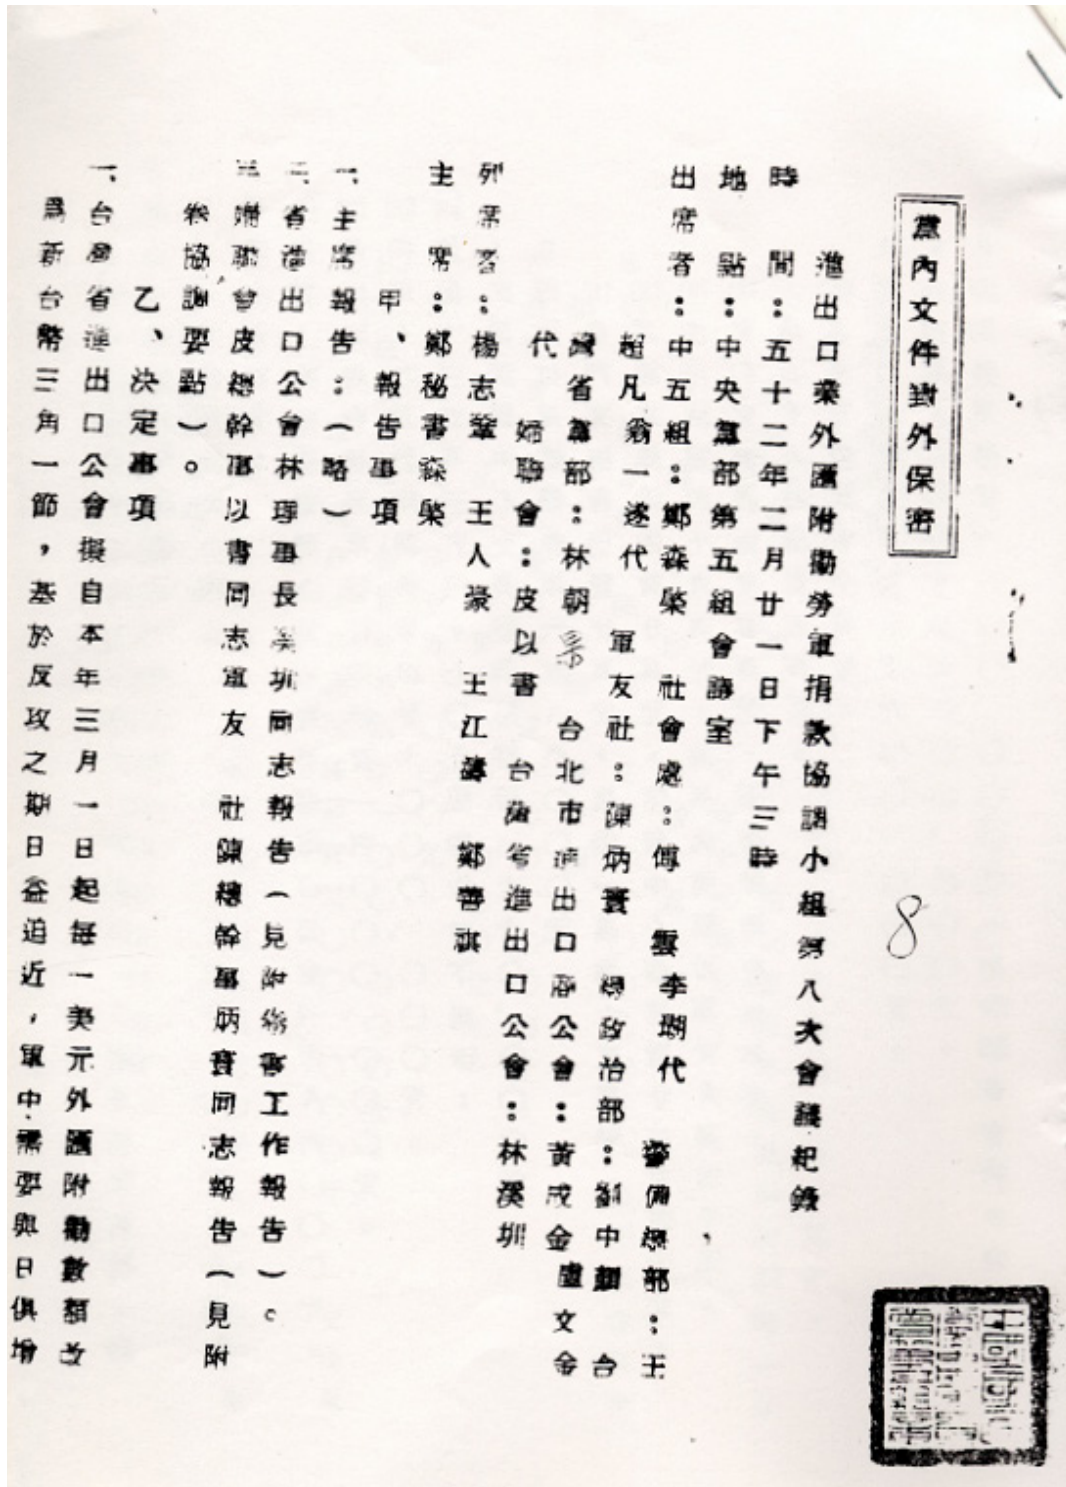 黨內文件對外保密
進出口業外匯附勸勞軍捐款協調小組第八次會議紀錄
時間：五十二年二月廿一日下午三時
地點：中央黨部第五組會議室
出席者：中五組：鄭森棨 社會處：傅雲李瑚代 警備總部：王
超凡翁一遂代 軍友社：陳炳寰 總政治部：劉中 台
灣省黨部：林朝 台北市進出口商公會：黃成金 盧文金
代 婦聯會：皮以書 台灣省進出口公會：林溪圳
列席者：楊志 王人豪 王江 鄭善祺
主席：鄭秘書森棨
甲、報告事項
一、主席報告：（略）
二、省進出口公會林理事長溪圳同志報告（見附 書工作報告）。
三、婦聯會皮總幹事以書同志軍友社陳總幹事炳寰同志報告（見附
卷協調要點）。
乙、決定事項
一、台灣省進出口公會擬自本年三月一日起每一美元外匯附勸數額改
爲新台幣三角一節，基於反攻之期日益迫近，軍中需要與日俱增
8